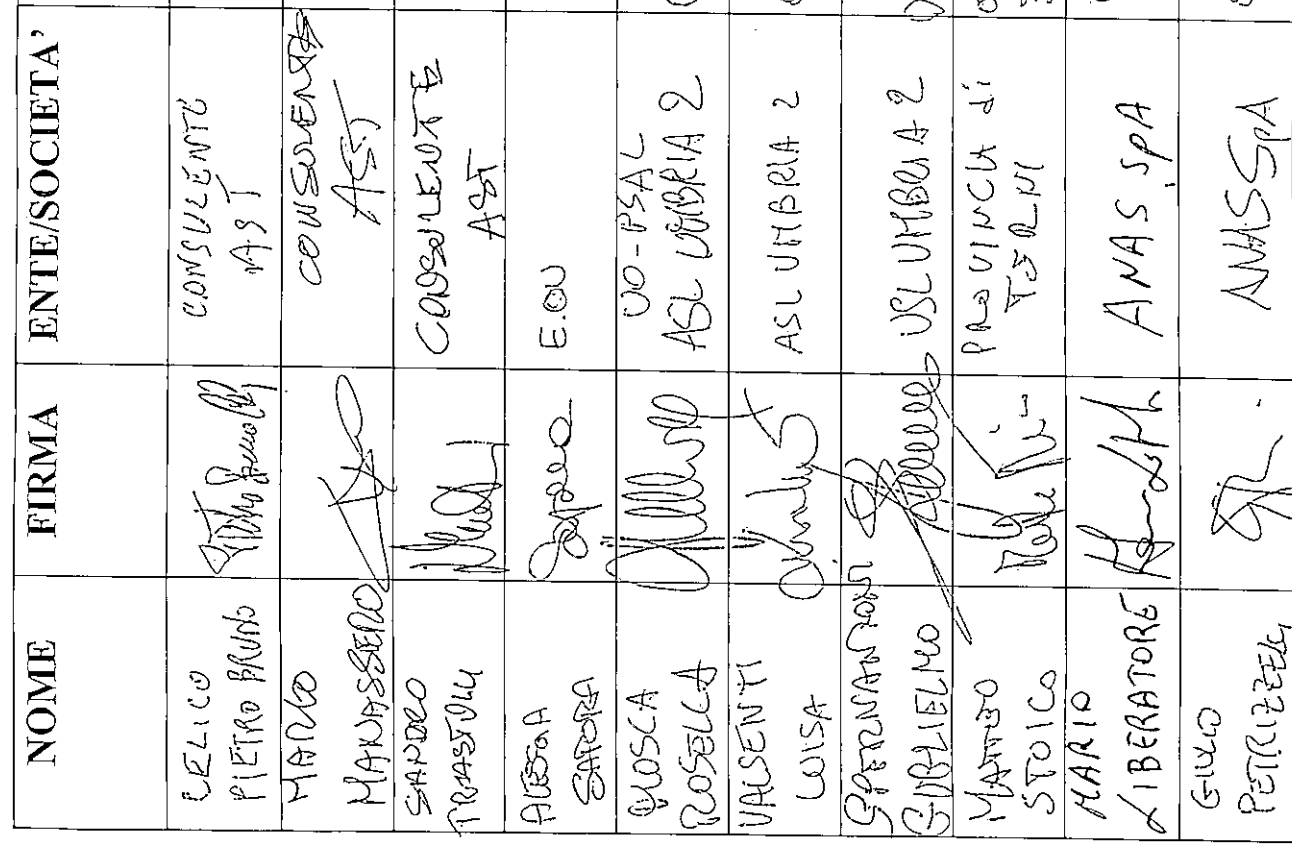 NOME FIRMA ENTE/SOCIETA'
CELICO
PIETRO BRUNO
CONSULENTE
AST
MARCO
MANASSERO
CONSULENTE
AST
SANDRO
TRASTULLI
CONSULENTE
AST
E.ON
ROSELLA
UO-PSAL
ASL UMBRIA 2
VALSENTI
LUISA
ASL UMBRIA 2
SPERNANZONI
GUGLIELMO
USL UMBRIA 2
MATTEO
STOICO
PROVINCIA di
TERNI
MARIO
LIBERATORE
ANAS SpA
GIULIO
PETRIZZELLI
ANAS SpA